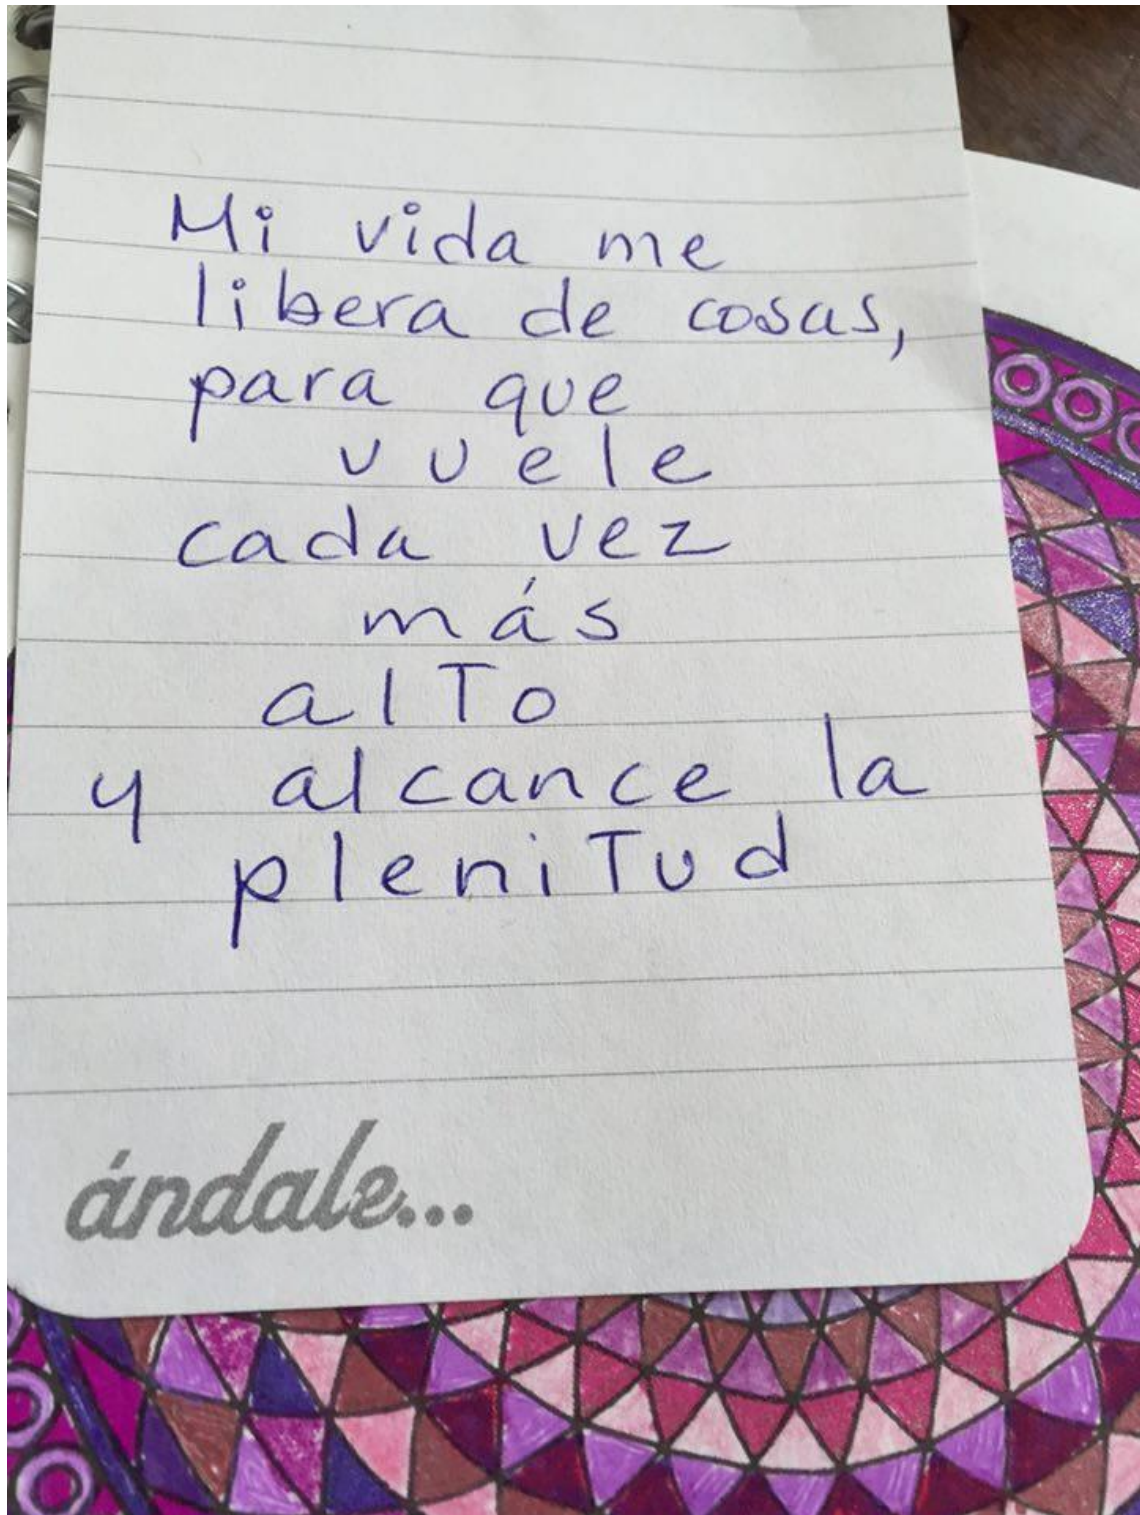 Mi vida me
libera de cosas,
para que
vuele
cada vez
más
alTo
y alcance la
pleniTud
ándale...